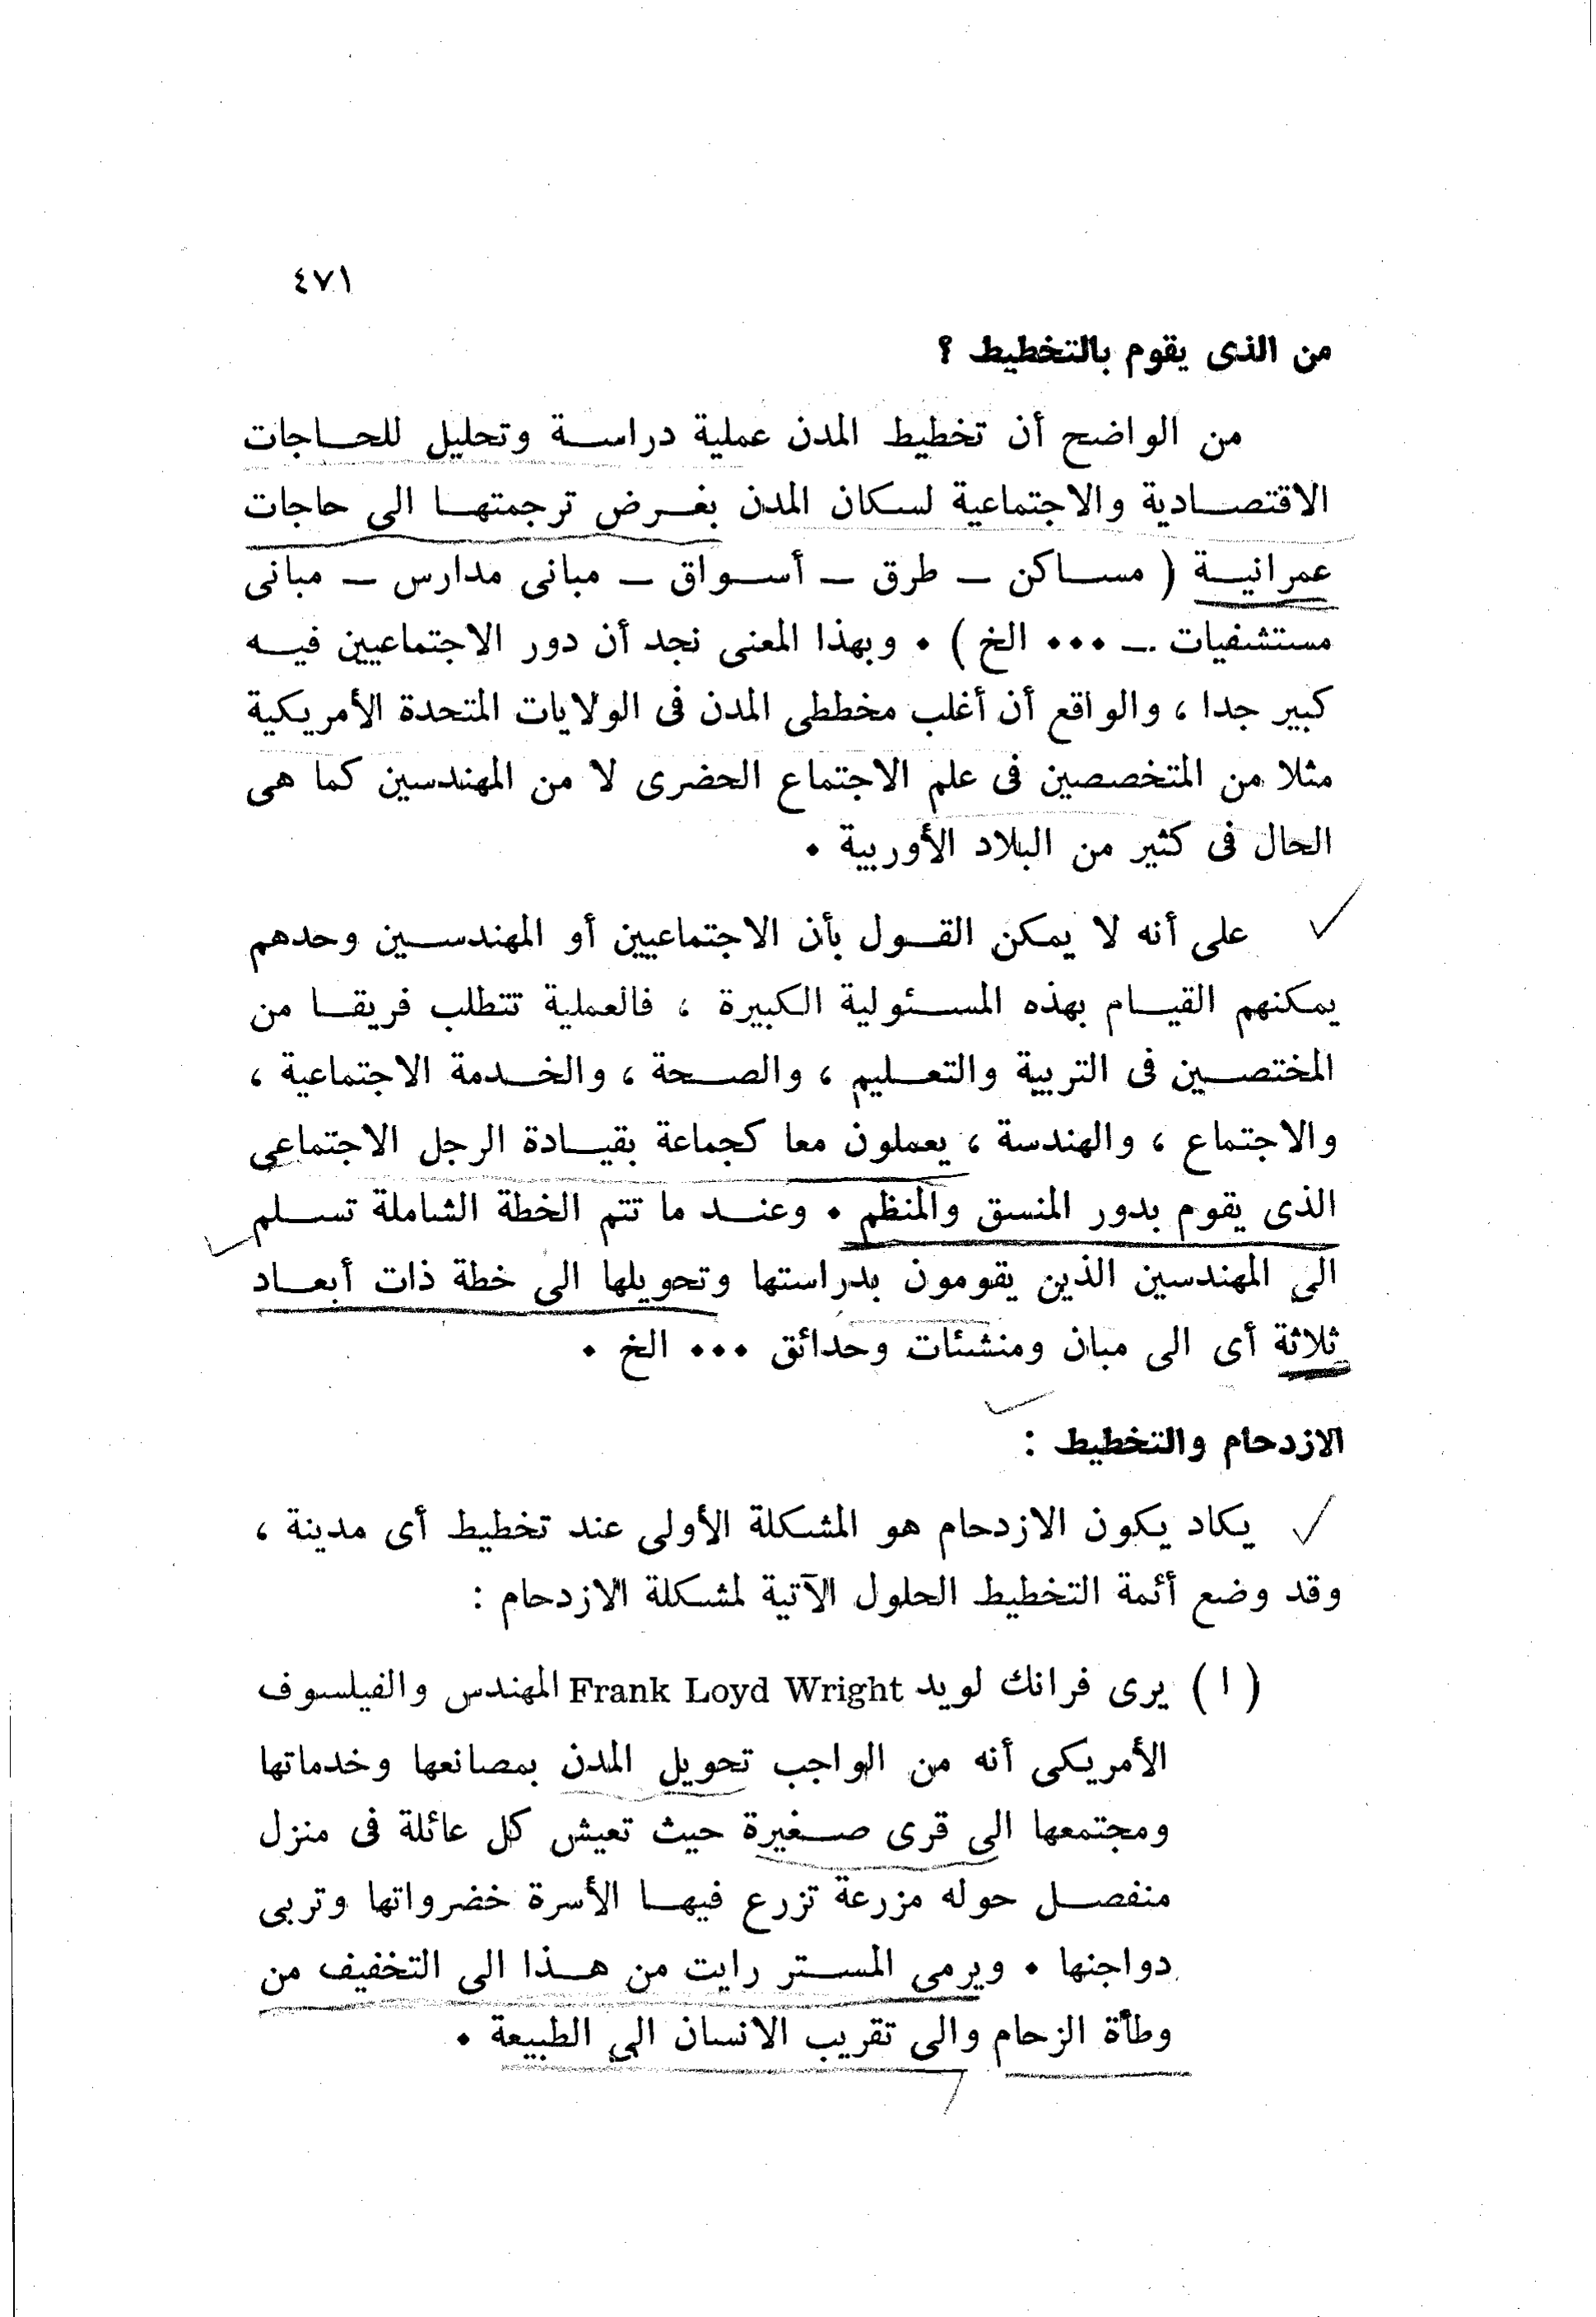 ٤٧١
من الذى يقوم بالتخطيط ؟
من الواضح أن تخطيط المدن عملية دراسة وتحليل للحاجات
الاقتصادية والاجتماعية لسكان المدن بغرض ترجمتها الى حاجات
عمرانية ( مساكن ــ طرق ــ أسواق ــ مبانى مدارس ــ مبانى
مستشفيات ــ ٠٠٠ الخ ) ٠ وبهذا المعنى نجد أن دور الاجتماعيين فيه
كبير جدا ، والواقع أن أغلب مخططى المدن فى الولايات المتحدة الأمريكية
مثلا من المتخصصين فى علم الاجتماع الحضرى لا من المهندسين كما هى
الحال فى كثير من البلاد الأوربية ٠
على أنه لا يمكن القول بأن الاجتماعيين أو المهندسين وحدهم
يمكنهم القيام بهذه المسئولية الكبيرة ، فالعملية تتطلب فريقا من
المختصين فى التربية والتعليم ، والصحة ، والخدمة الاجتماعية ،
والاجتماع ، والهندسة ، يعملون معا كجماعة بقيادة الرجل الاجتماعى
الذى يقوم بدور المنسق والمنظم ٠ وعند ما تتم الخطة الشاملة تسلم
الى المهندسين الذين يقومون بدراستها وتحويلها الى خطة ذات أبعاد
ثلاثة أى الى مبان ومنشئات وحدائق ٠٠٠ الخ ٠
الازدحام والتخطيط :
يكاد يكون الازدحام هو المشكلة الأولى عند تخطيط أى مدينة ،
وقد وضع أئمة التخطيط الحلول الآتية لمشكلة الازدحام :
( ا ) يرى فرانك لويد Frank Loyd Wright المهندس والفيلسوف
الأمريكى أنه من الواجب تحويل المدن بمصانعها وخدماتها
ومجتمعها الى قرى صغيرة حيث تعيش كل عائلة فى منزل
منفصل حوله مزرعة تزرع فيها الأسرة خضرواتها وتربى
دواجنها ٠ ويرمى المستر رايت من هذا الى التخفيف من
وطأة الزحام والى تقريب الانسان الى الطبيعة ٠